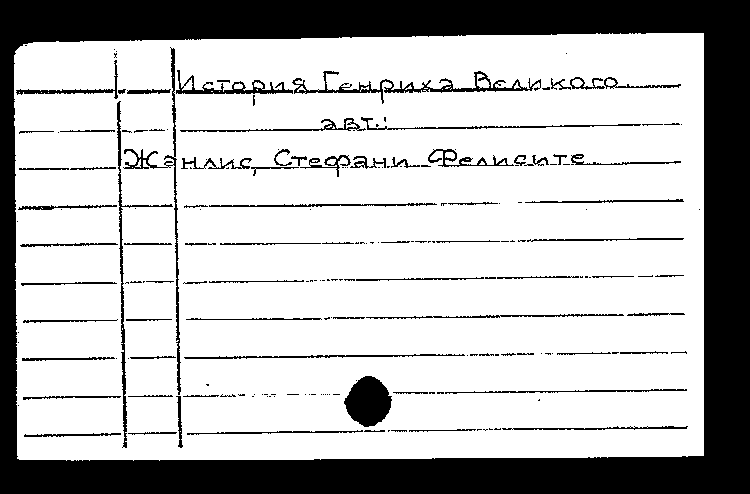 История Генриха Великого.
авт.:
Жанлис, Стефани Фелисите.